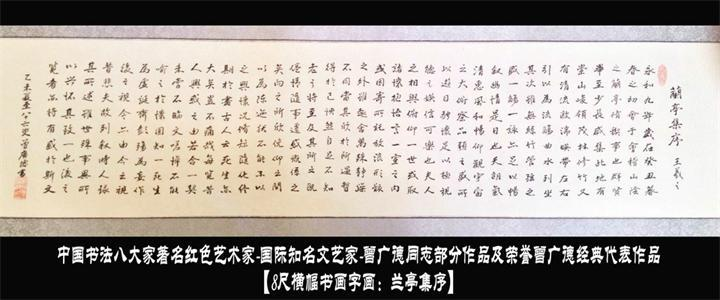 蘭亭集序 王羲之
永和九年歲在癸丑暮
春之初會于會稽山陰
之蘭亭脩禊事也群賢
畢至少長咸集此地有
崇山峻領茂林修竹又
有清流激湍暎帶左右
引以為流觴曲水列坐
其次雖無絲竹管弦之
盛一觴一詠亦足以暢
叙幽情是日也天朗氣
清惠風和暢仰觀宇宙
之大俯察品類之盛所
以遊目騁懷足以極視
聽之娛信可樂也夫人
之相與俯仰一世或取
諸懷抱悟言一室之內
或因寄所託放浪形骸
之外雖趣舍萬殊靜躁
不同當其欣於所遇暫
得於己快然自足不知
老之將至及其所之既
惓情隨事遷感慨係之
矣向之所欣俛仰之間
以為陳迹猶不能不以
之興懷況脩短隨化終
期於盡古人云死生亦
大矣豈不痛哉每覽昔
人興感之由若合一契
未嘗不臨文嗟悼不能
喻之於懷固知一死生
為虛誕齊彭殤為妄作
後之視今亦由今之視
昔悲夫故列敘時人錄
其所述雖世殊事異所
以興懷其致一也後之
覽者亦將有感於斯文
乙未 習廣德書
中国书法八大家著名红色艺术家-国际知名文艺家-習广德同志部分作品及荣誉習广德经典代表作品
【8尺横幅书画字画：兰亭集序】